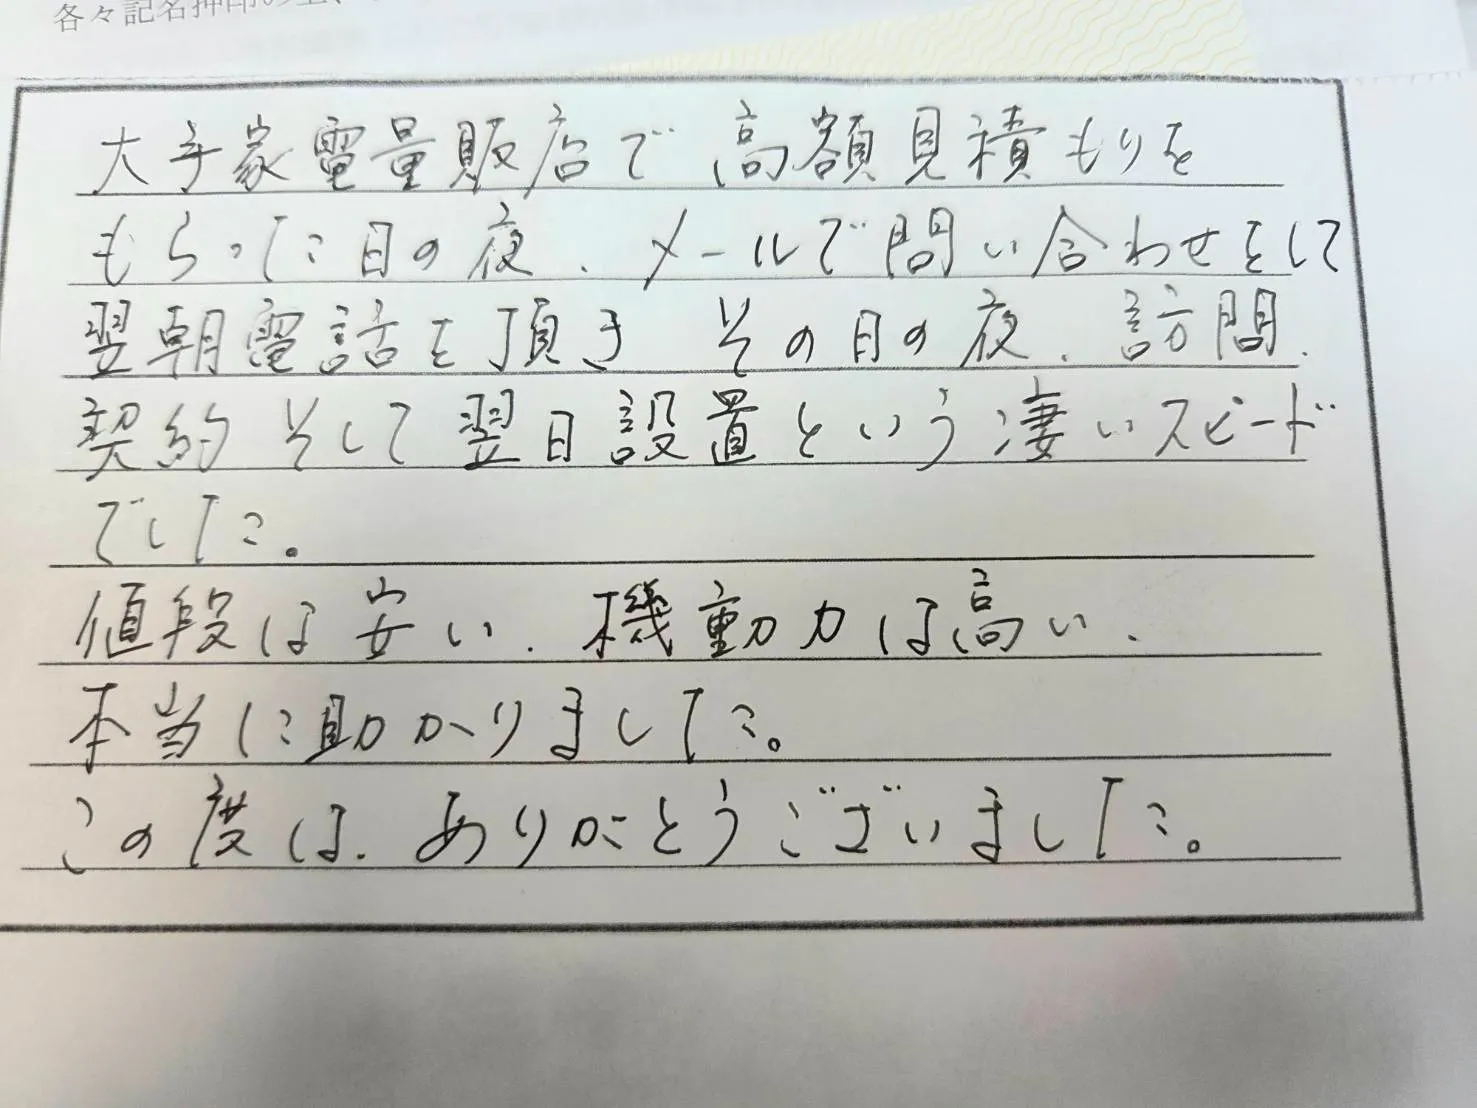 各々記名押印の上、
大手家電量販店で高額見積もりを
もらった日の夜、メールで問い合わせをして
翌朝電話を頂き その日の夜、訪問、
契約 そして翌日設置という凄いスピード
でした。
値段は安い、機動力は高い、
本当に助かりました。
この度は、ありがとうございました。